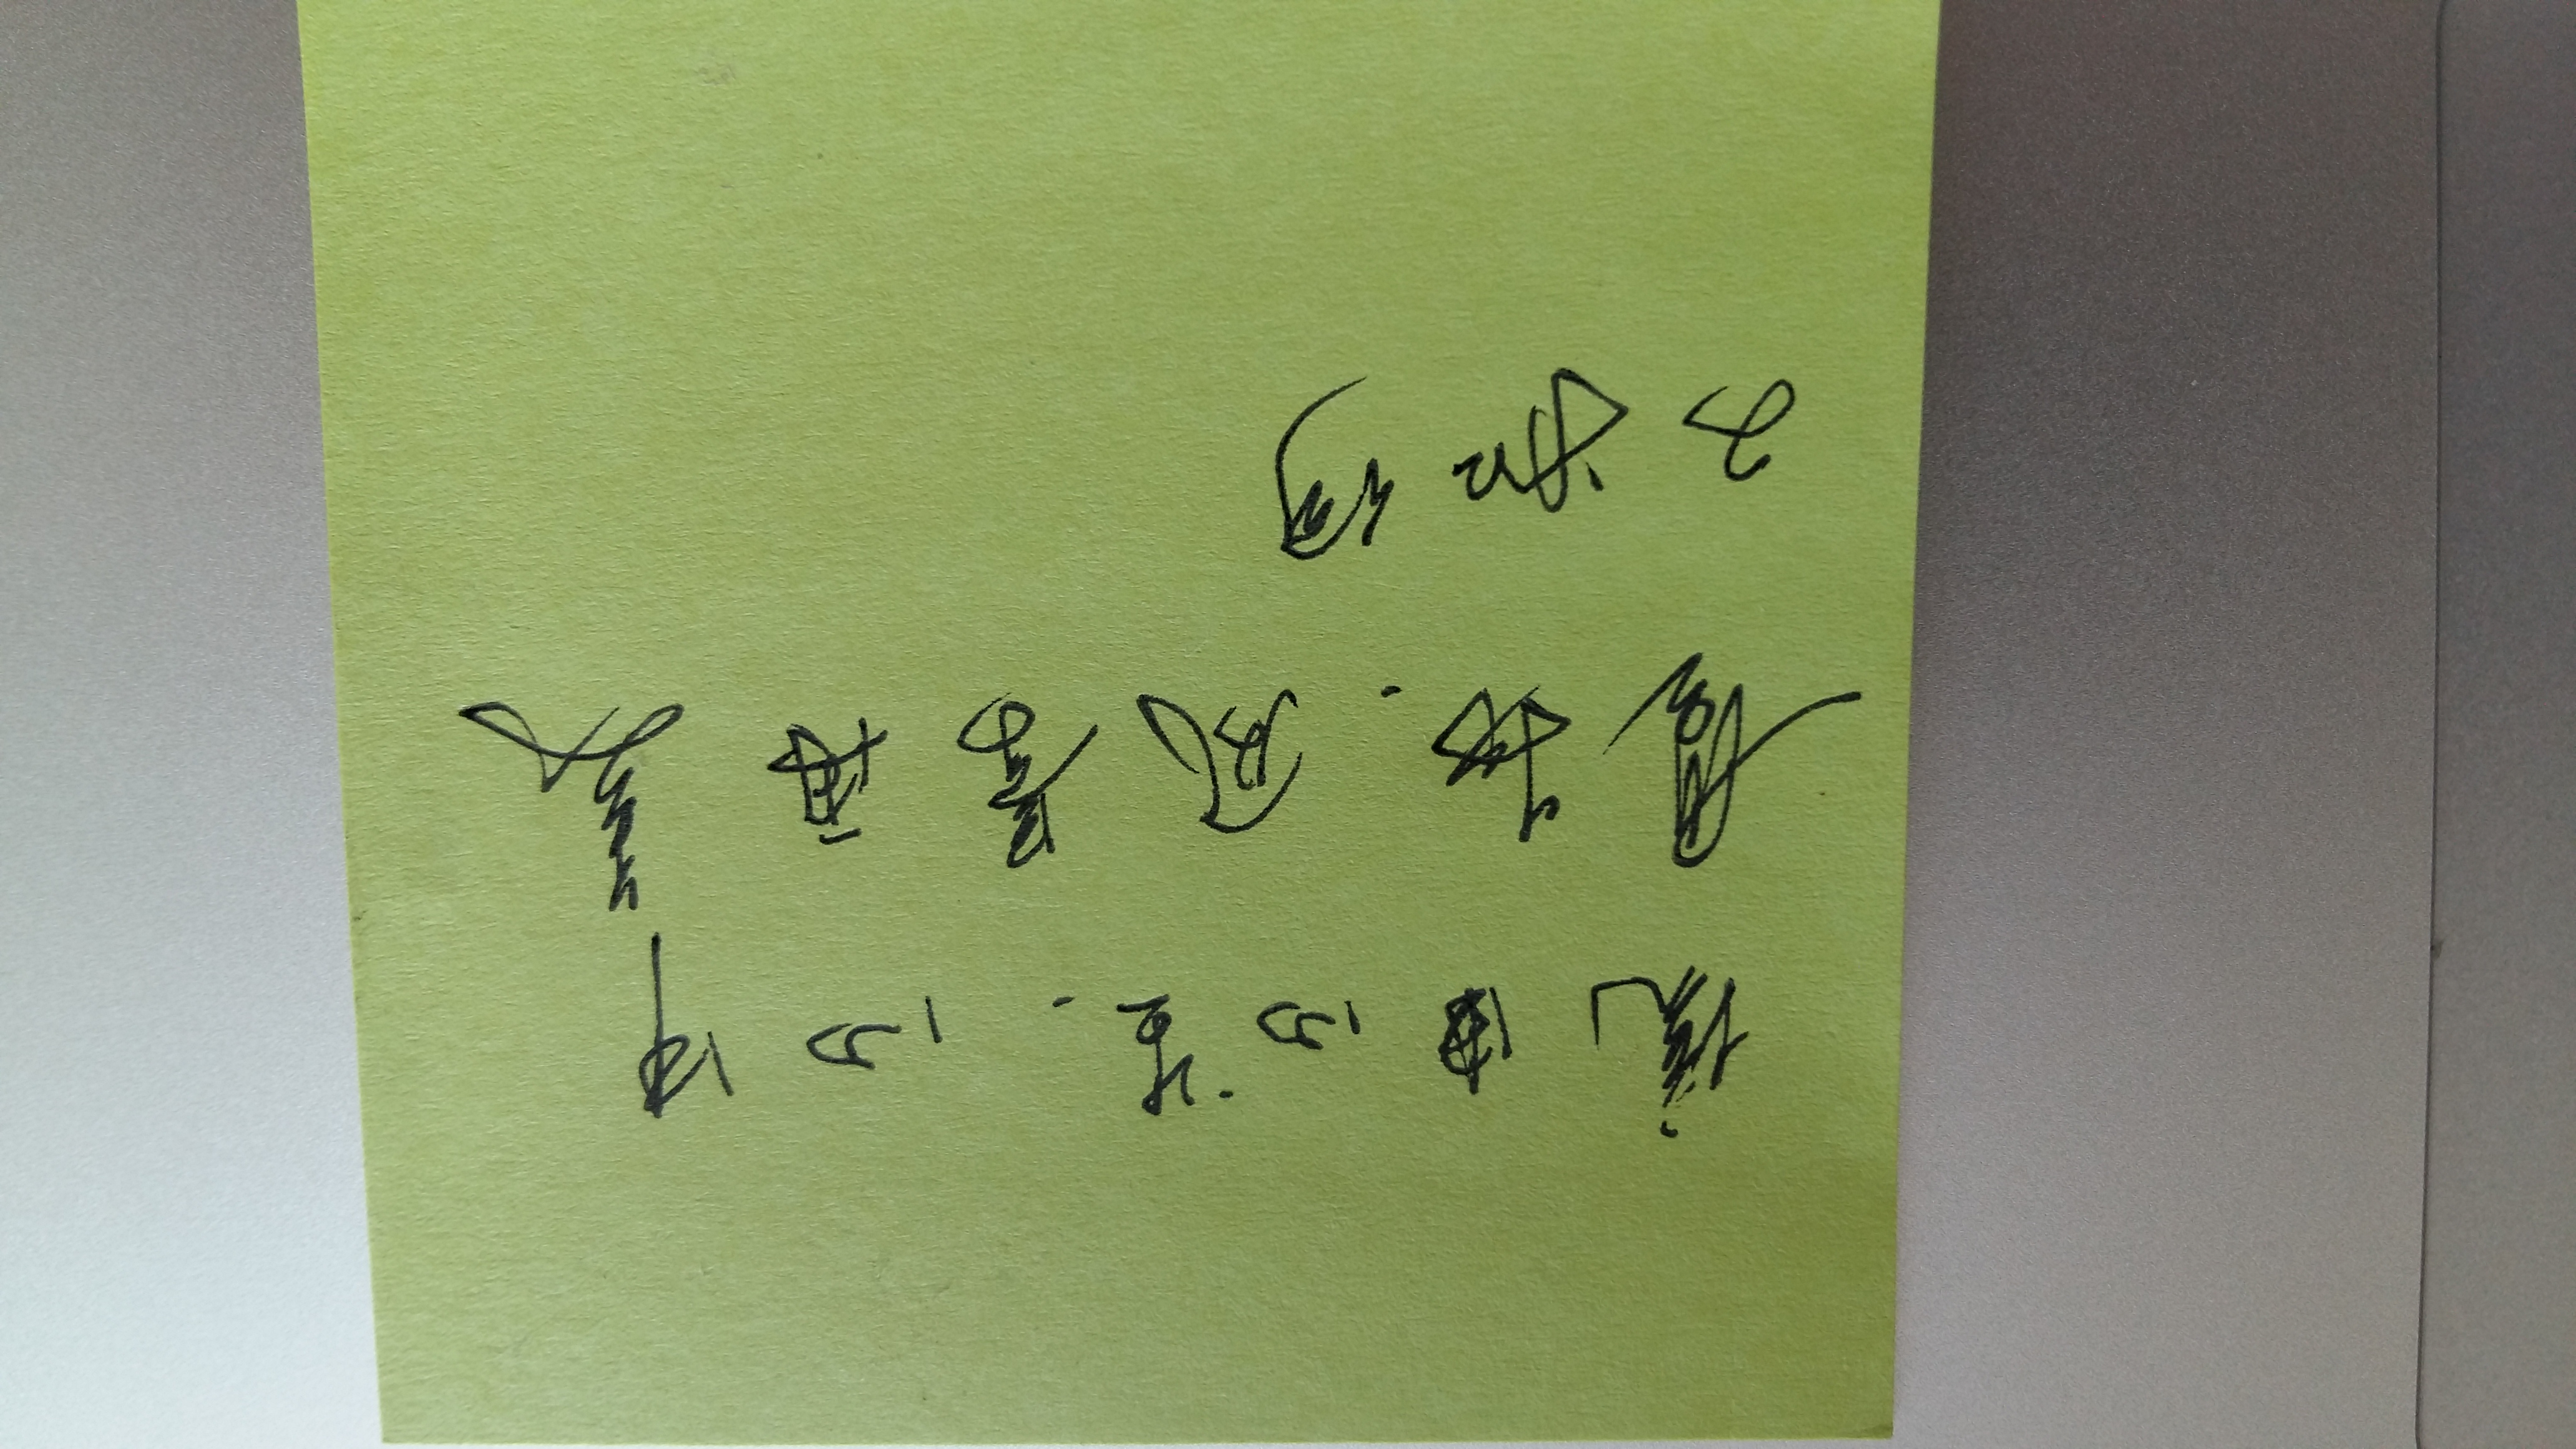 境由心生.心中
是物.风景再美
又如何